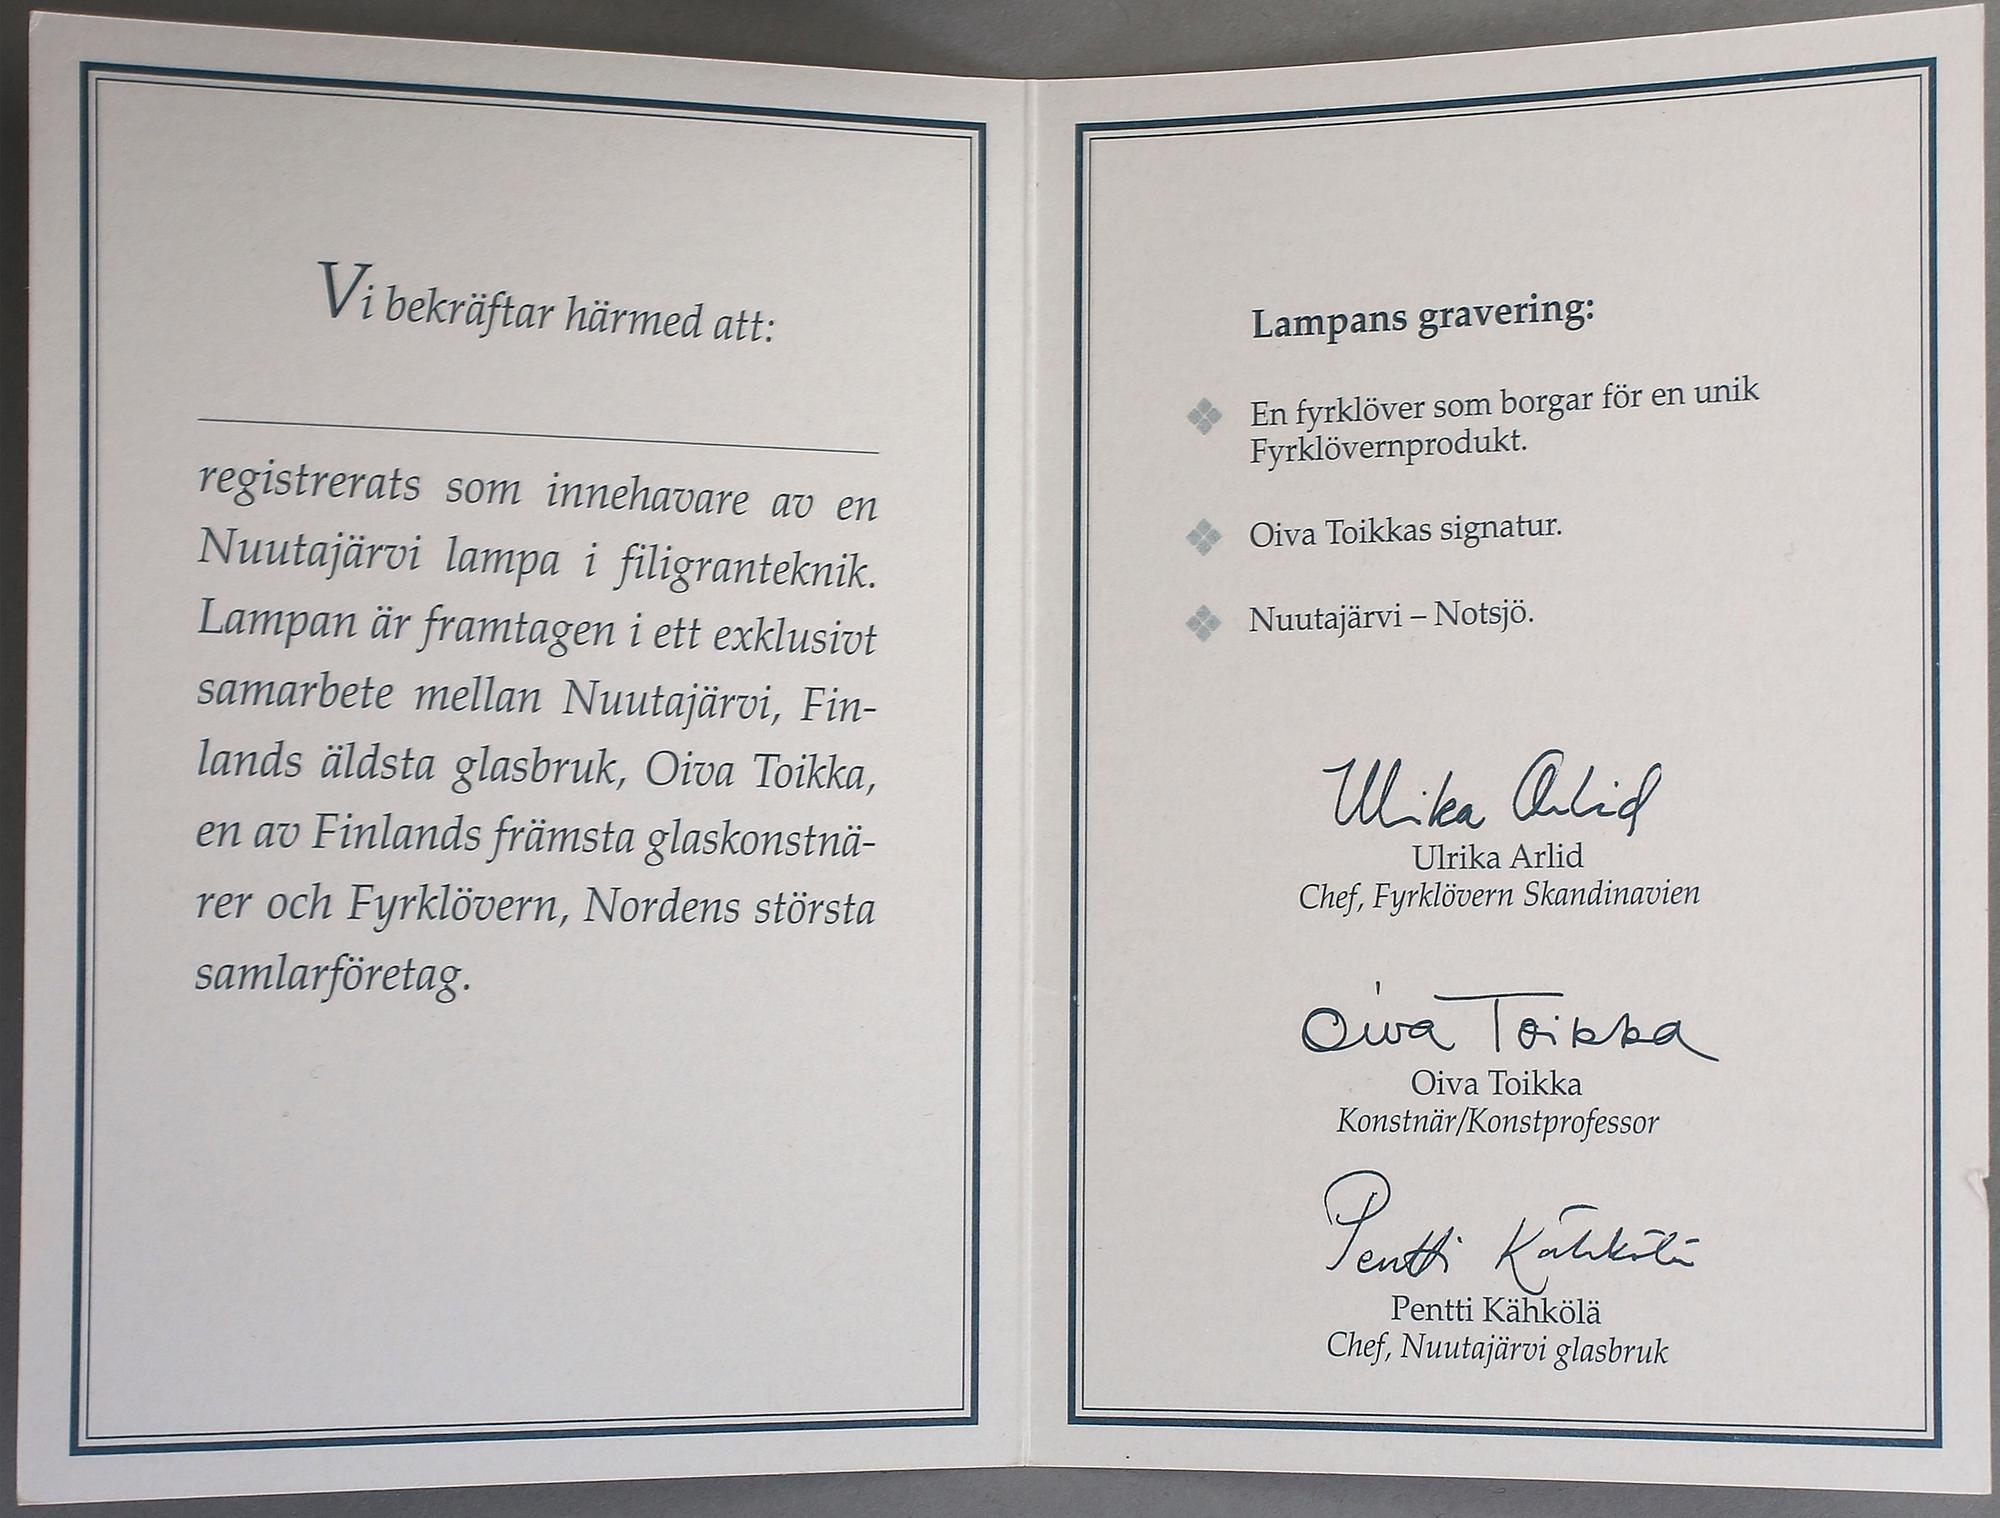 Vi bekräftar härmed att:
registrerats som innehavare av en
Nuutajärvi lampa i filigranteknik.
Lampan är framtagen i ett exklusivt
samarbete mellan Nuutajärvi, Fin-
lands äldsta glasbruk, Oiva Toikka,
en av Finlands främsta glaskonstnä-
rer och Fyrklövern, Nordens största
samlarföretag.
Lampans gravering:
En fyrklöver som borgar för en unik
Fyrklövernprodukt.
Oiva Toikkas signatur.
Nuutajärvi – Notsjö.
Ulrika Arlid
Ulrika Arlid
Chef, Fyrklövern Skandinavien
Oiva Toikka
Oiva Toikka
Konstnär/Konstprofessor
Pentti Kähkölä
Pentti Kähkölä
Chef, Nuutajärvi glasbruk